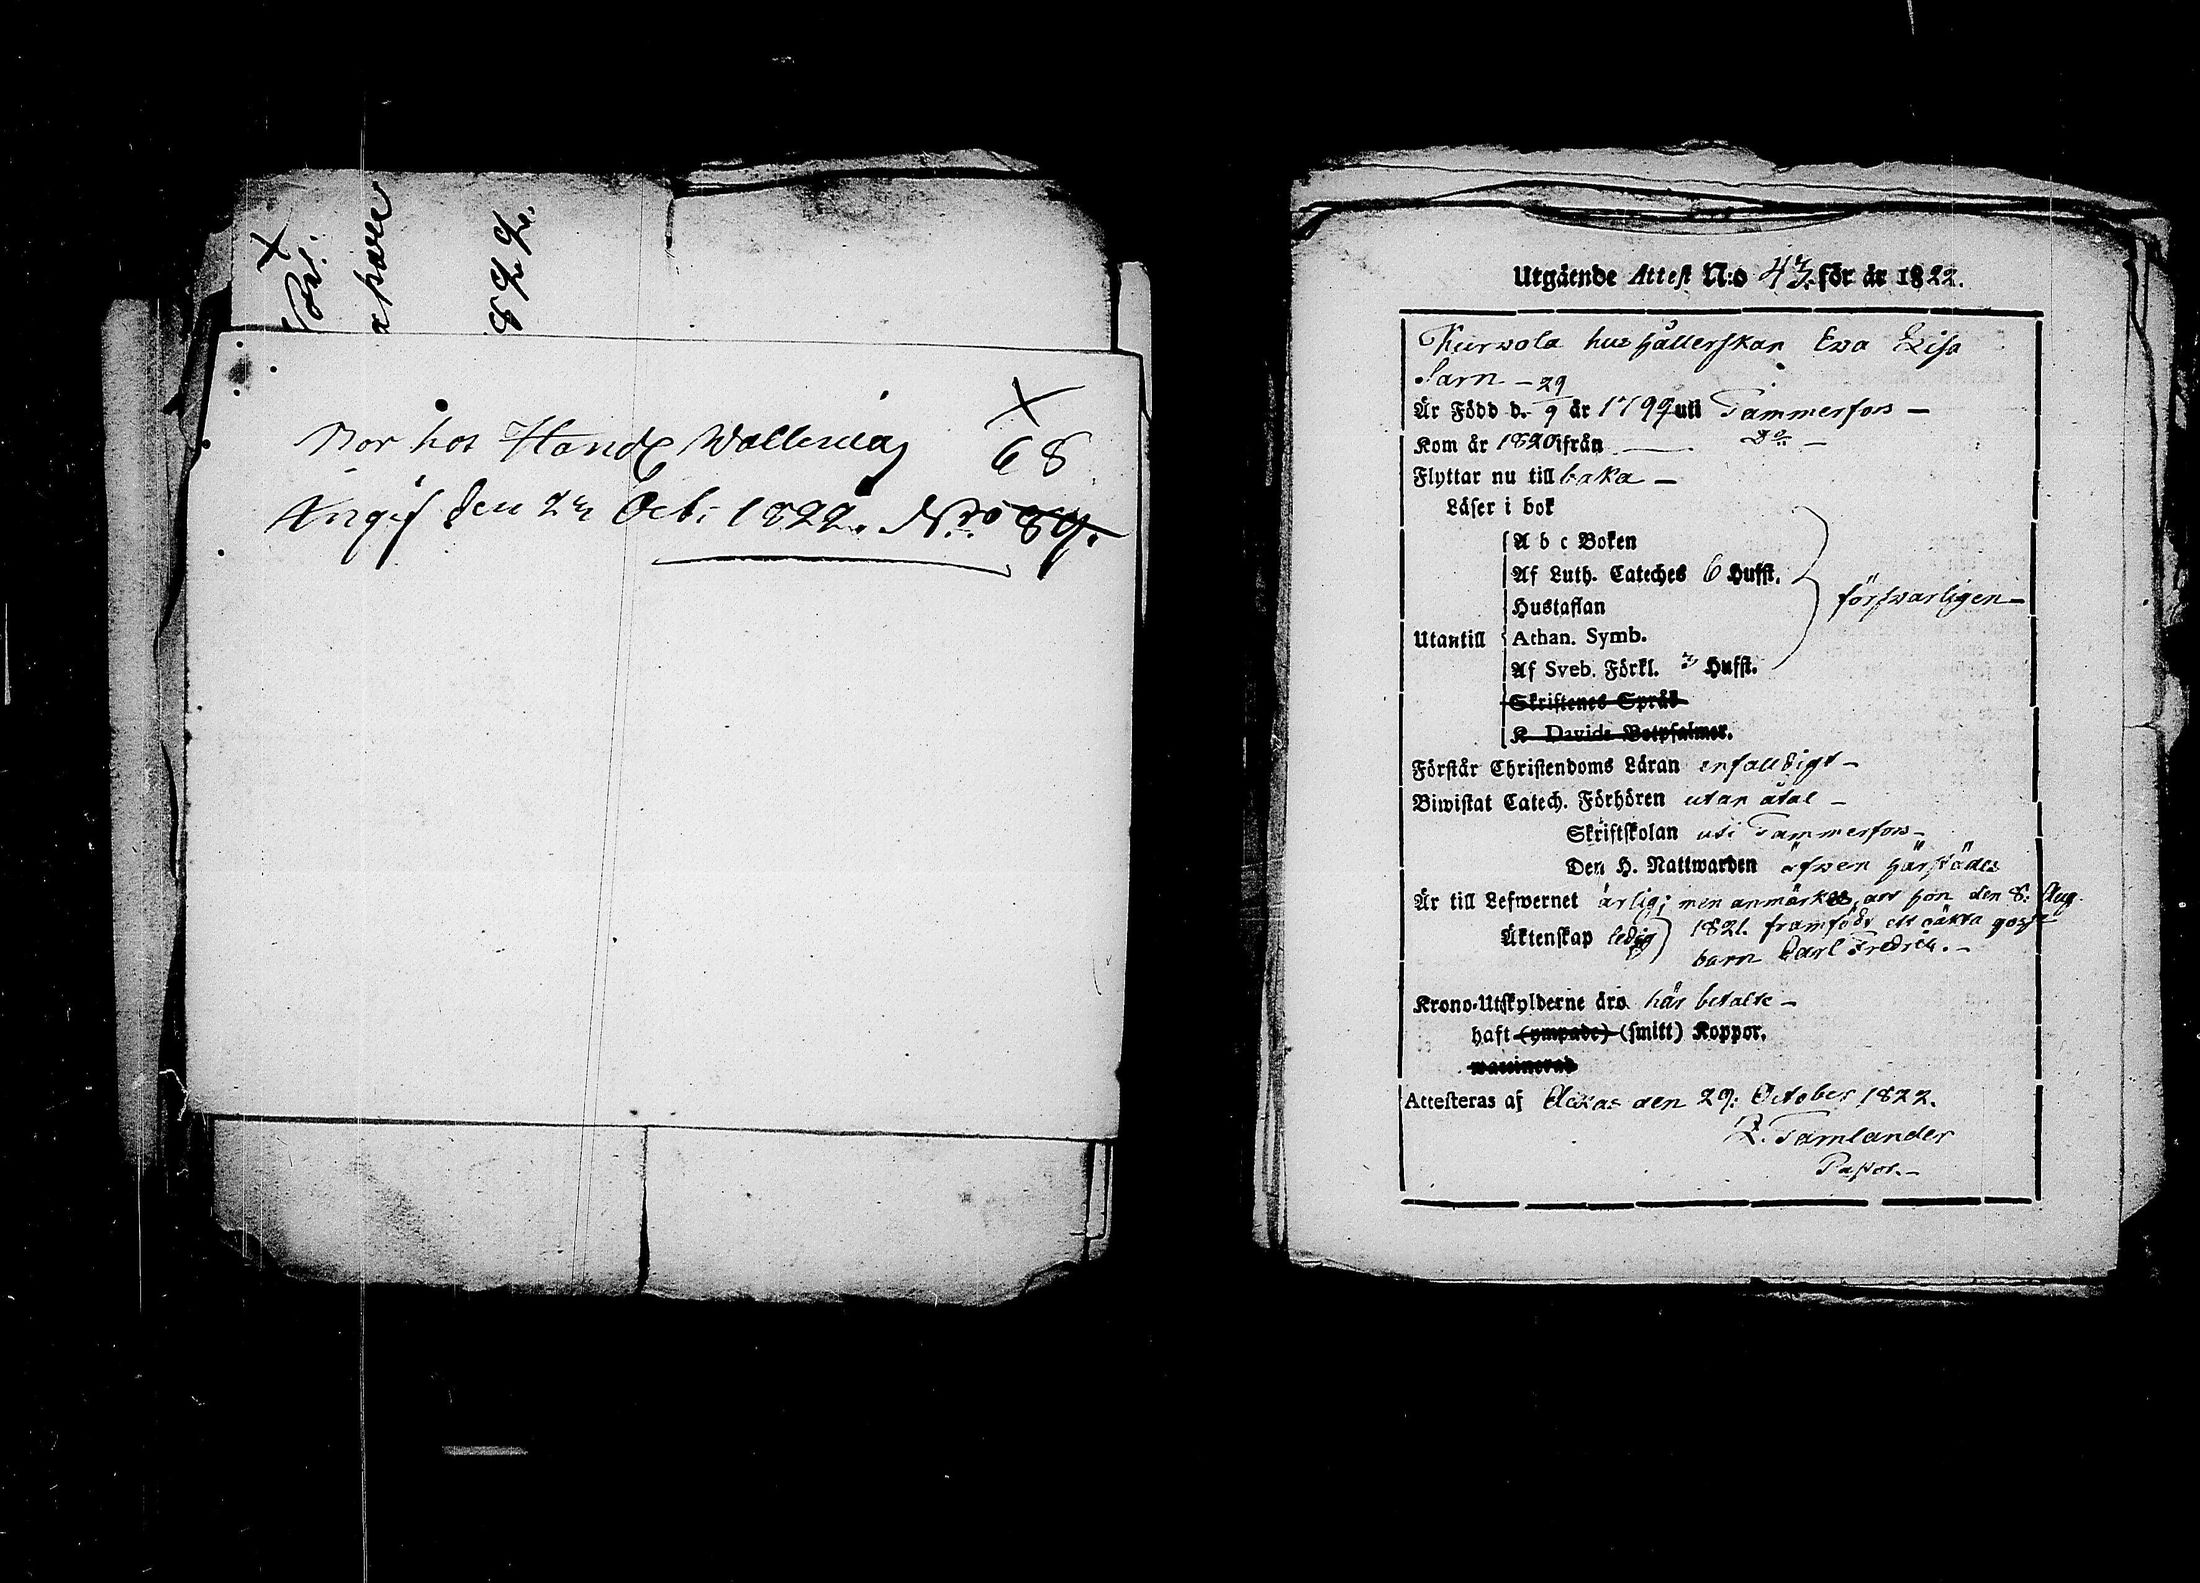 1822.
Bor hos Handl Wallenius
68
Angif den 2 Oct: 1822. N:ro 89.
Utgående Attest N:o 43 för år 1822.
Kurvola hushållerskan Eva Lisa
Sarn —
Är Född d. 29/9 år 1799 uti Tammerfors —
Kom år 1820 ifrån — D:o —
Flyttar nu till baka —
Läser i bok
A b c Boken
Af Luth. Cateches 6 Hufst.
förswarligen —
Hustaflan
Utantill
Athan. Symb.
Af Sveb. Förkl. 3 Hufst.
Skriftenes Språk
K. Davids Botpsalmer.
Förstår Christendoms Läran enfalldigt —
Biwistat Catech. Förhören utan åtal —
Skriftskolan uti Tammerfors —
Den H. Nattwarden äfwen härstädes
Är till Lefwernet ärlig; men anmärkes, att hon den 8: Aug.
Äktenskap ledig
1821. framfödt ett oäkta gosse
barn Carl Fredric. —
Krono-Utskylderne äro här betalte —
haft (ympade) (smitt) Koppor.
waccinerad
Attesteras af Ackas den 29: October 1822.
Z. Tamlander
Pastor. —